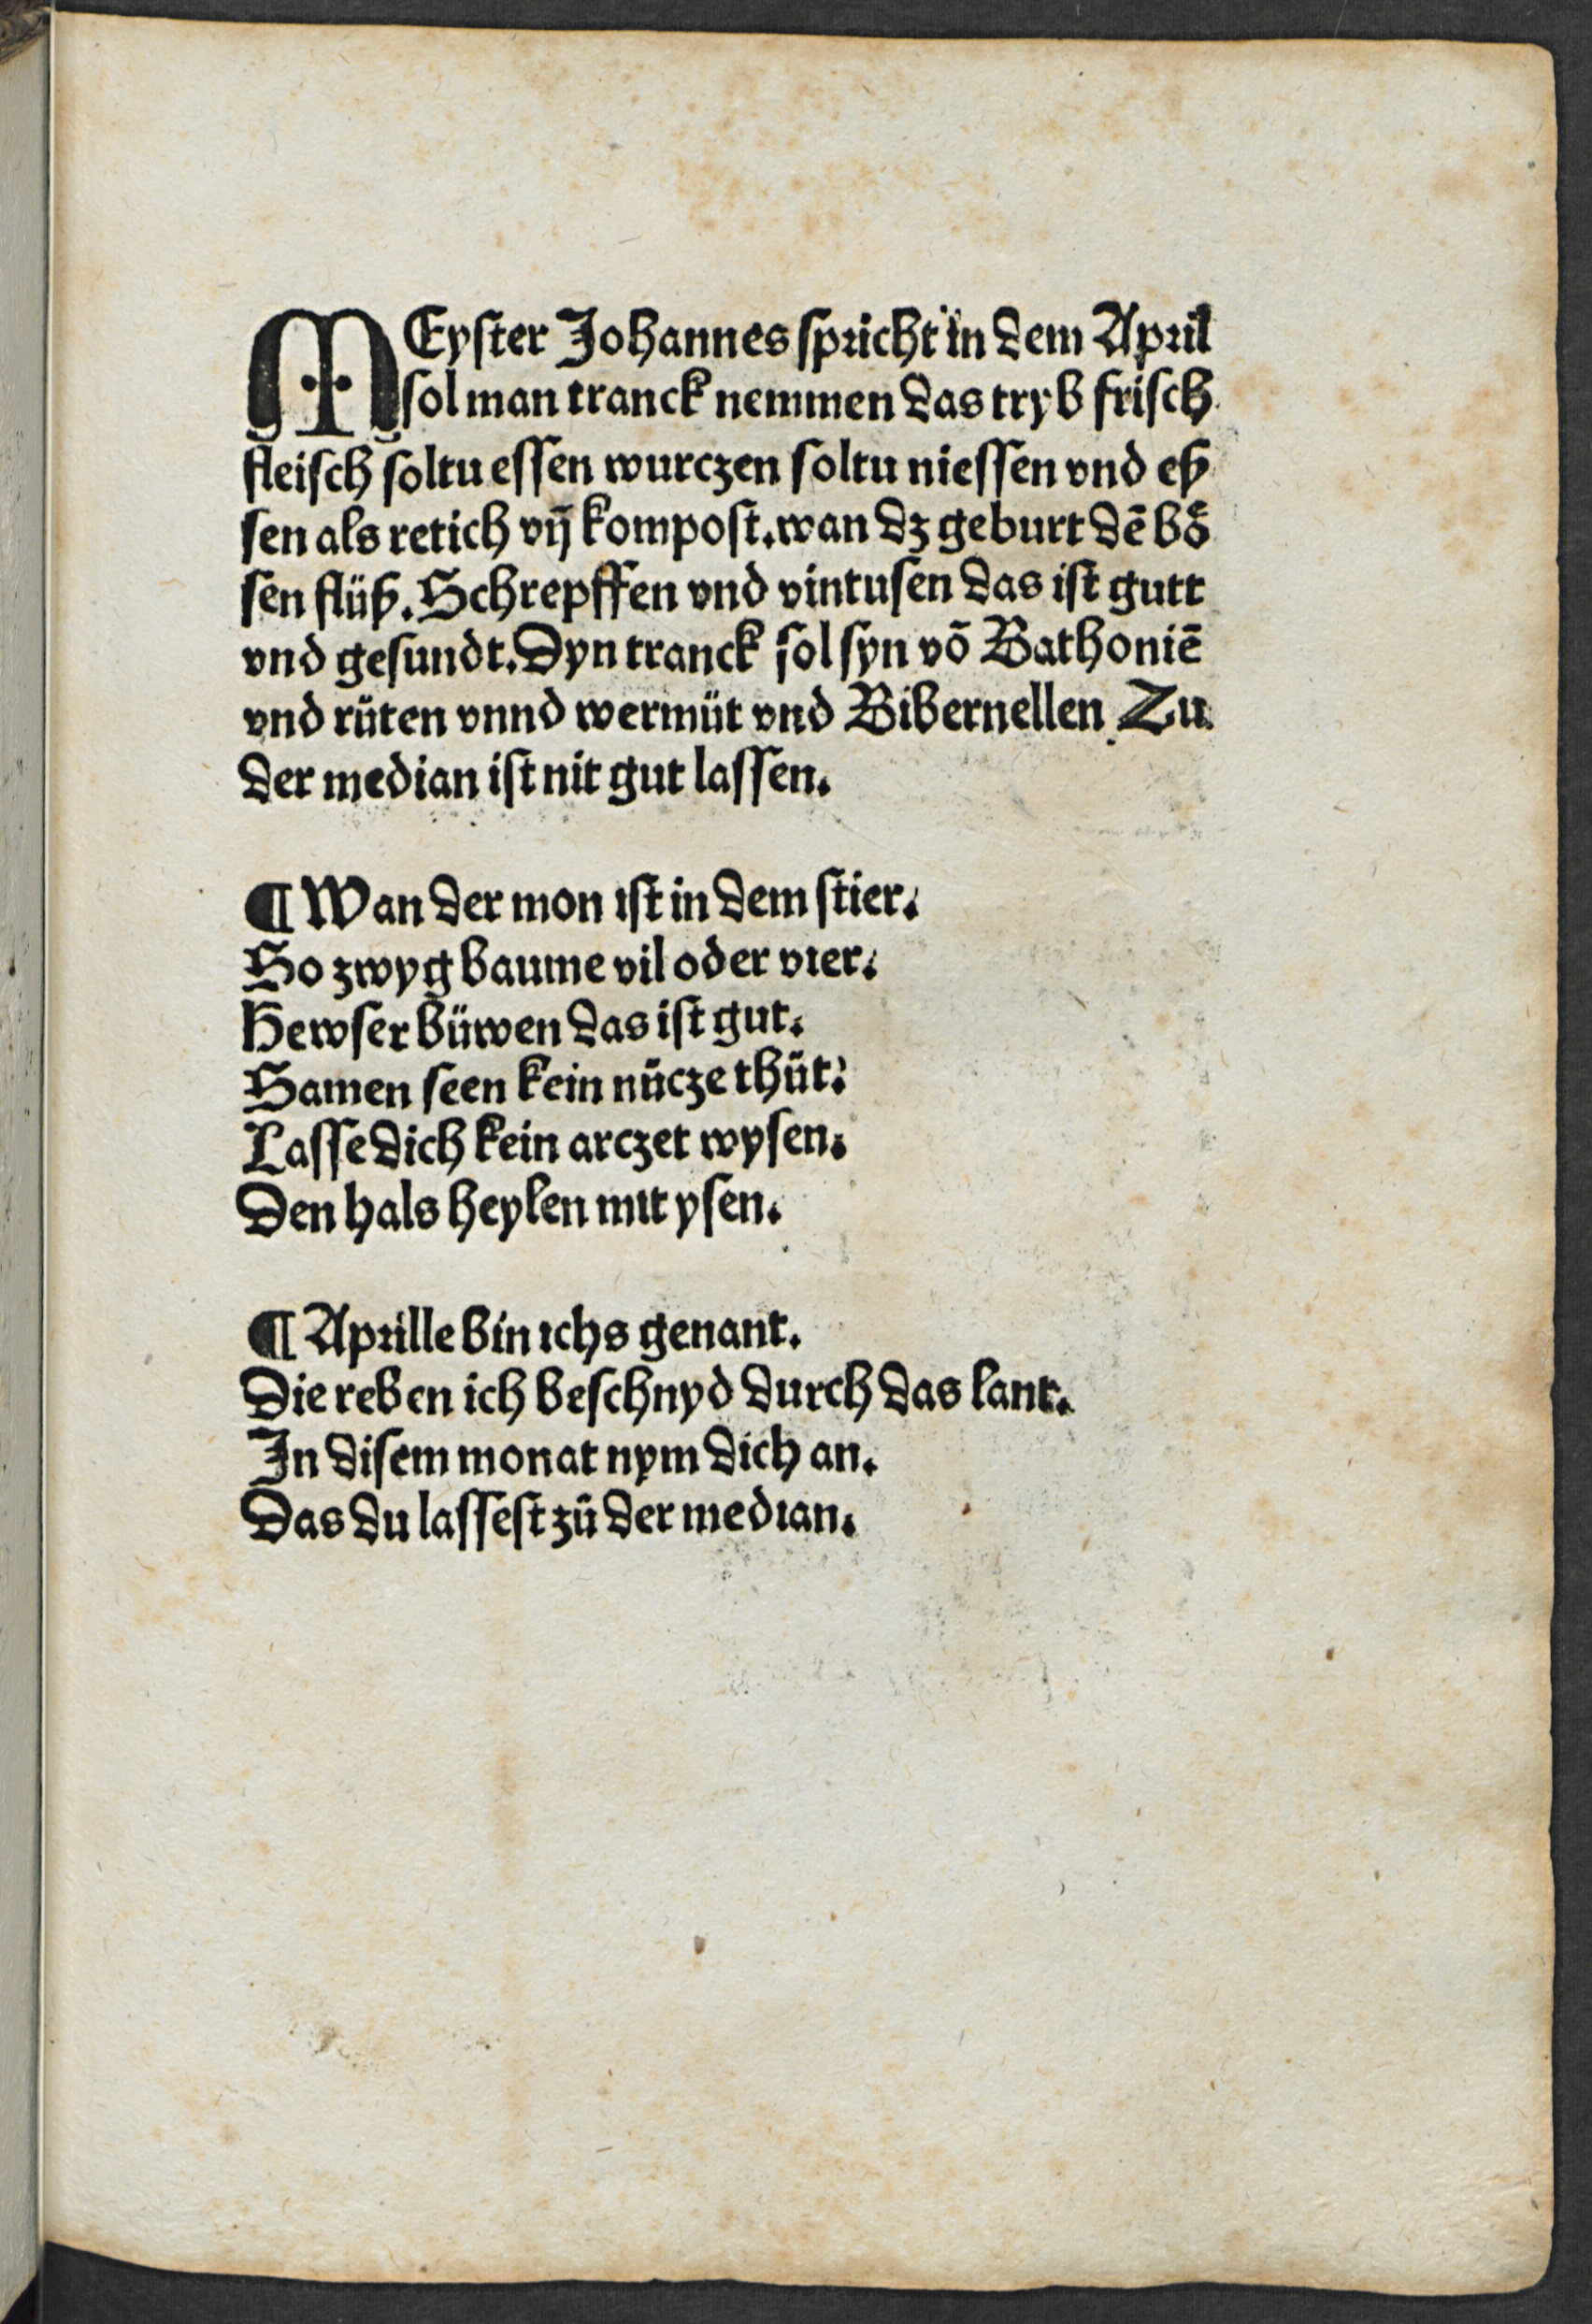 MEyſter Johannes ſpricht in dem April
ſol man tranck nemmen das tryb friſch
fleiſch ſoltu eſſen wurczen ſoltu nieſſen vnd eß
ſen als retich vñ kompoſt. wan dz geburt dē boͤ
ſen flüß. Schrepffen vnd vintuſen das iſt gutt
vnd geſundt. Dyn tranck ſol ſyn vō Bathoniē
vnd rüten vnnd wermüt vnd Bibernellen Zu
der median iſt nit gut laſſen.
¶ Wan der mon iſt in dem ſtier.
So zwyg baume vil oder vier.
Hewſer büwen das iſt gut.
Samen ſeen kein nücze thüt:
Laſſe dich kein arczet wyſen.
Den hals heylen mit yſen.
¶ Aprille bin ichs genant.
Die reben ich beſchnyd durch das lant.
In diſem monat nym dich an.
Das du laſſeſt zü der median.